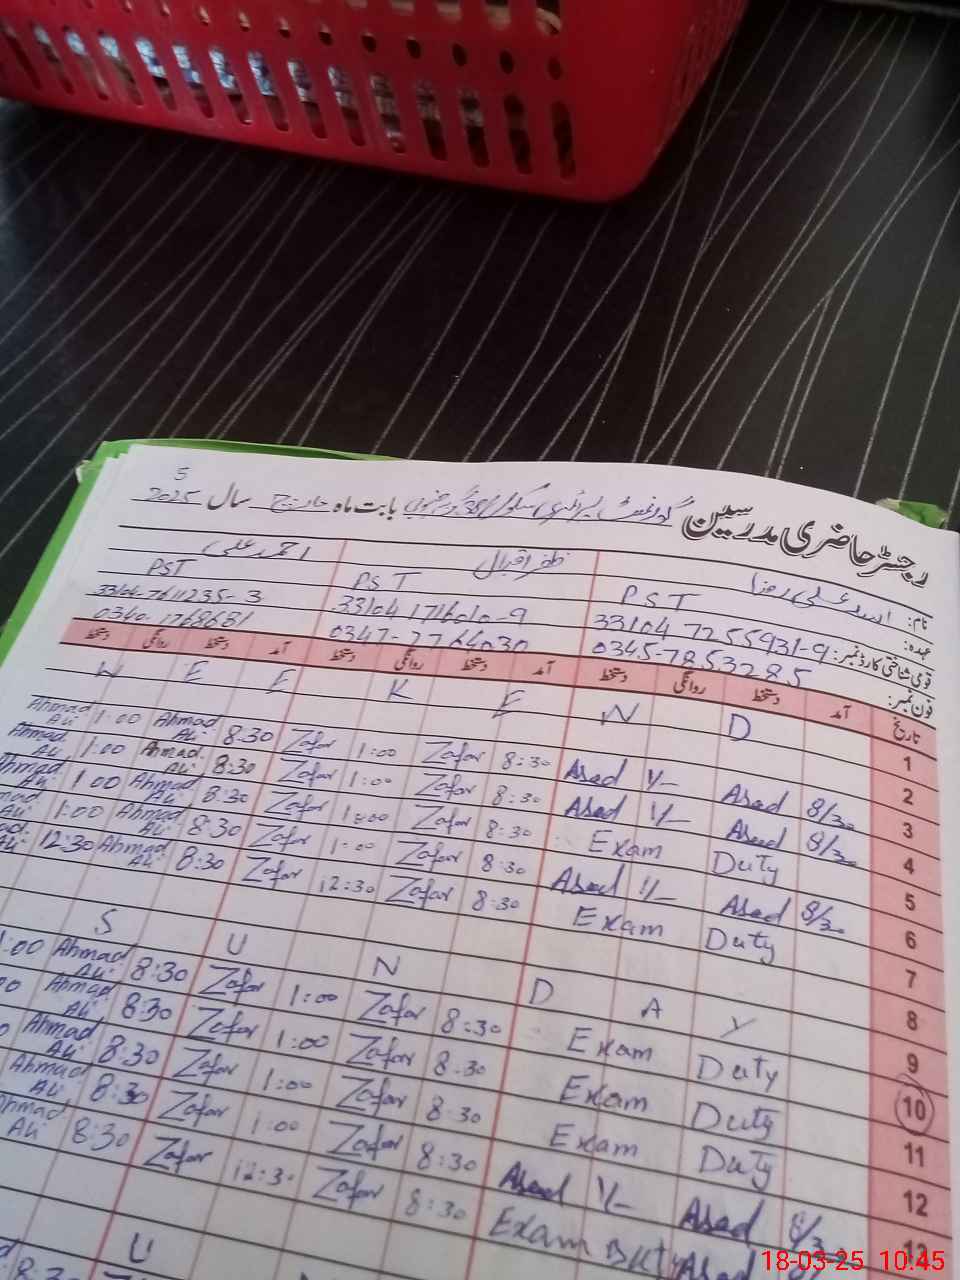 رجسٹر حاضری مدرسین گورنمنٹ بابت ماہ مارچ سال 2025
5
نام: اسد علی رضا ظفر اقبال احمد علی
عہدہ: PST PST PST
قومی شناختی کارڈ نمبر: 33104 7255931-9 33104 1716010-9
فون نمبر: 0345-7853285 0347-7764030 0340-1768681
تاریخ آمد دستخط روانگی دستخط آمد دستخط روانگی دستخط آمد دستخط روانگی دستخط
W E E K E N D
1
2
Ahmad Ali 1:00 Ahmad Ali 8:30 Zafar 1:00 Zafar 8:30 Asad 1/- Asad 8/30 3
Ahmad Ali 1:00 Ahmad Ali 8:30 Zafar 1:00 Zafar 8:30 Asad 1/- Asad 8/30 4
Ahmad Ali 1:00 Ahmad Ali 8:30 Zafar 1:00 Zafar 8:30 Exam Duty 5
Ali 1:00 Ahmad Ali 8:30 Zafar 1:00 Zafar 8:30 Asad 1/- Asad 8/30 6
Ali 12:30 Ahmad Ali 8:30 Zafar 12:30 Zafar 8:30 Exam Duty 7
8
S U N D A Y 9
1:00 Ahmad Ali 8:30 Zafar 1:00 Zafar 8:30 Exam Duty 10
Ahmad Ali 8:30 Zafar 1:00 Zafar 8:30 Exam Duty 11
Ahmad Ali 8:30 Zafar 1:00 Zafar 8:30 Exam Duty 12
Ahmad Ali 8:30 Zafar 1:00 Zafar 8:30 Asad 1/- Asad 8/30 13
Ahmad Ali 8:30 Zafar 12:30 Zafar 8:30 Exam Asad
U
18-03-25 10:45